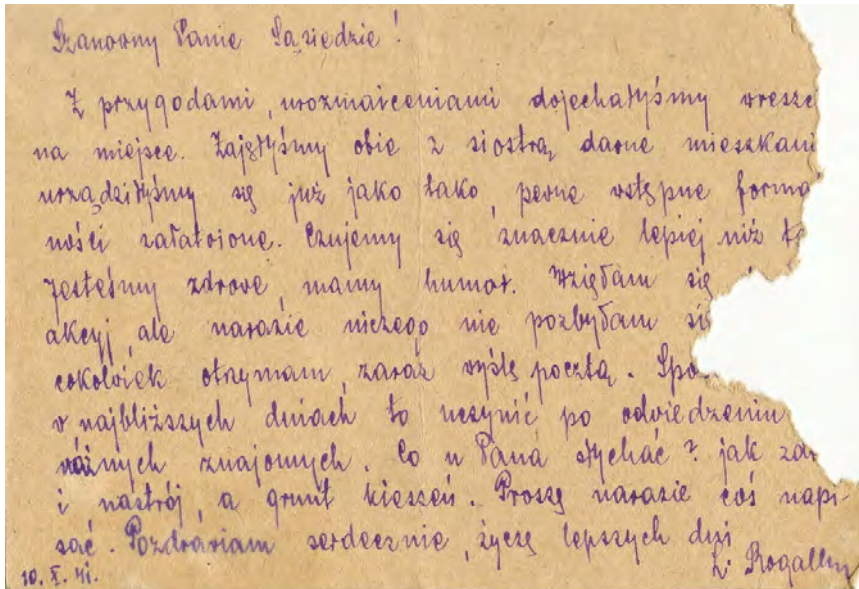 Szanowny Panie Sąsiedzie!
Z przygodami, urozmaiceniami dojechałyśmy wresz
na miejsce. Zajęłyśmy obie z siostrą dawne mieszkani
urządziłyśmy się już jako tako, pewne wstępne forma
ności załatwione. Czujemy się znacznie lepiej niż t
Jesteśmy zdrowe, mamy humor. Wzięłam się
akcyj, ale narazie niczego nie pozbyłam si
cokolwiek otrzymam, zaraz wyślę pocztą. Spo
w najbliższych dniach to uczynić po odwiedzeniu
różnych znajomych. Co u Pana słychać? jak zdr
i nastrój, a grunt kieszeń. Proszę narazie coś napi-
sać. Pozdrawiam serdecznie, życzę lepszych dni
10. X. 41.